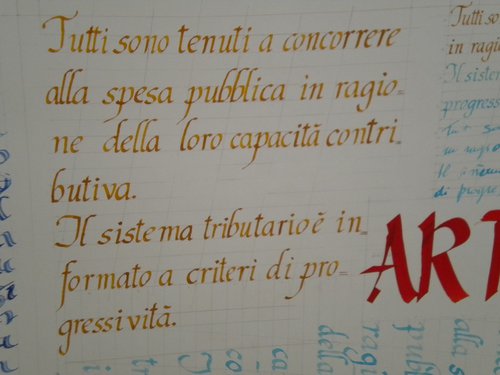 Tutti sono tenuti a concorrere
alla spesa pubblica in ragio=
ne della loro capacità contri=
butiva.
Il sistema tributario è in=
formato a criteri di pro=
gressività.
ART
Tutti so
in ragio
Il sistem
progress
di progre
alla s
pubb
ragi
della
ca
co
Il
tr
i